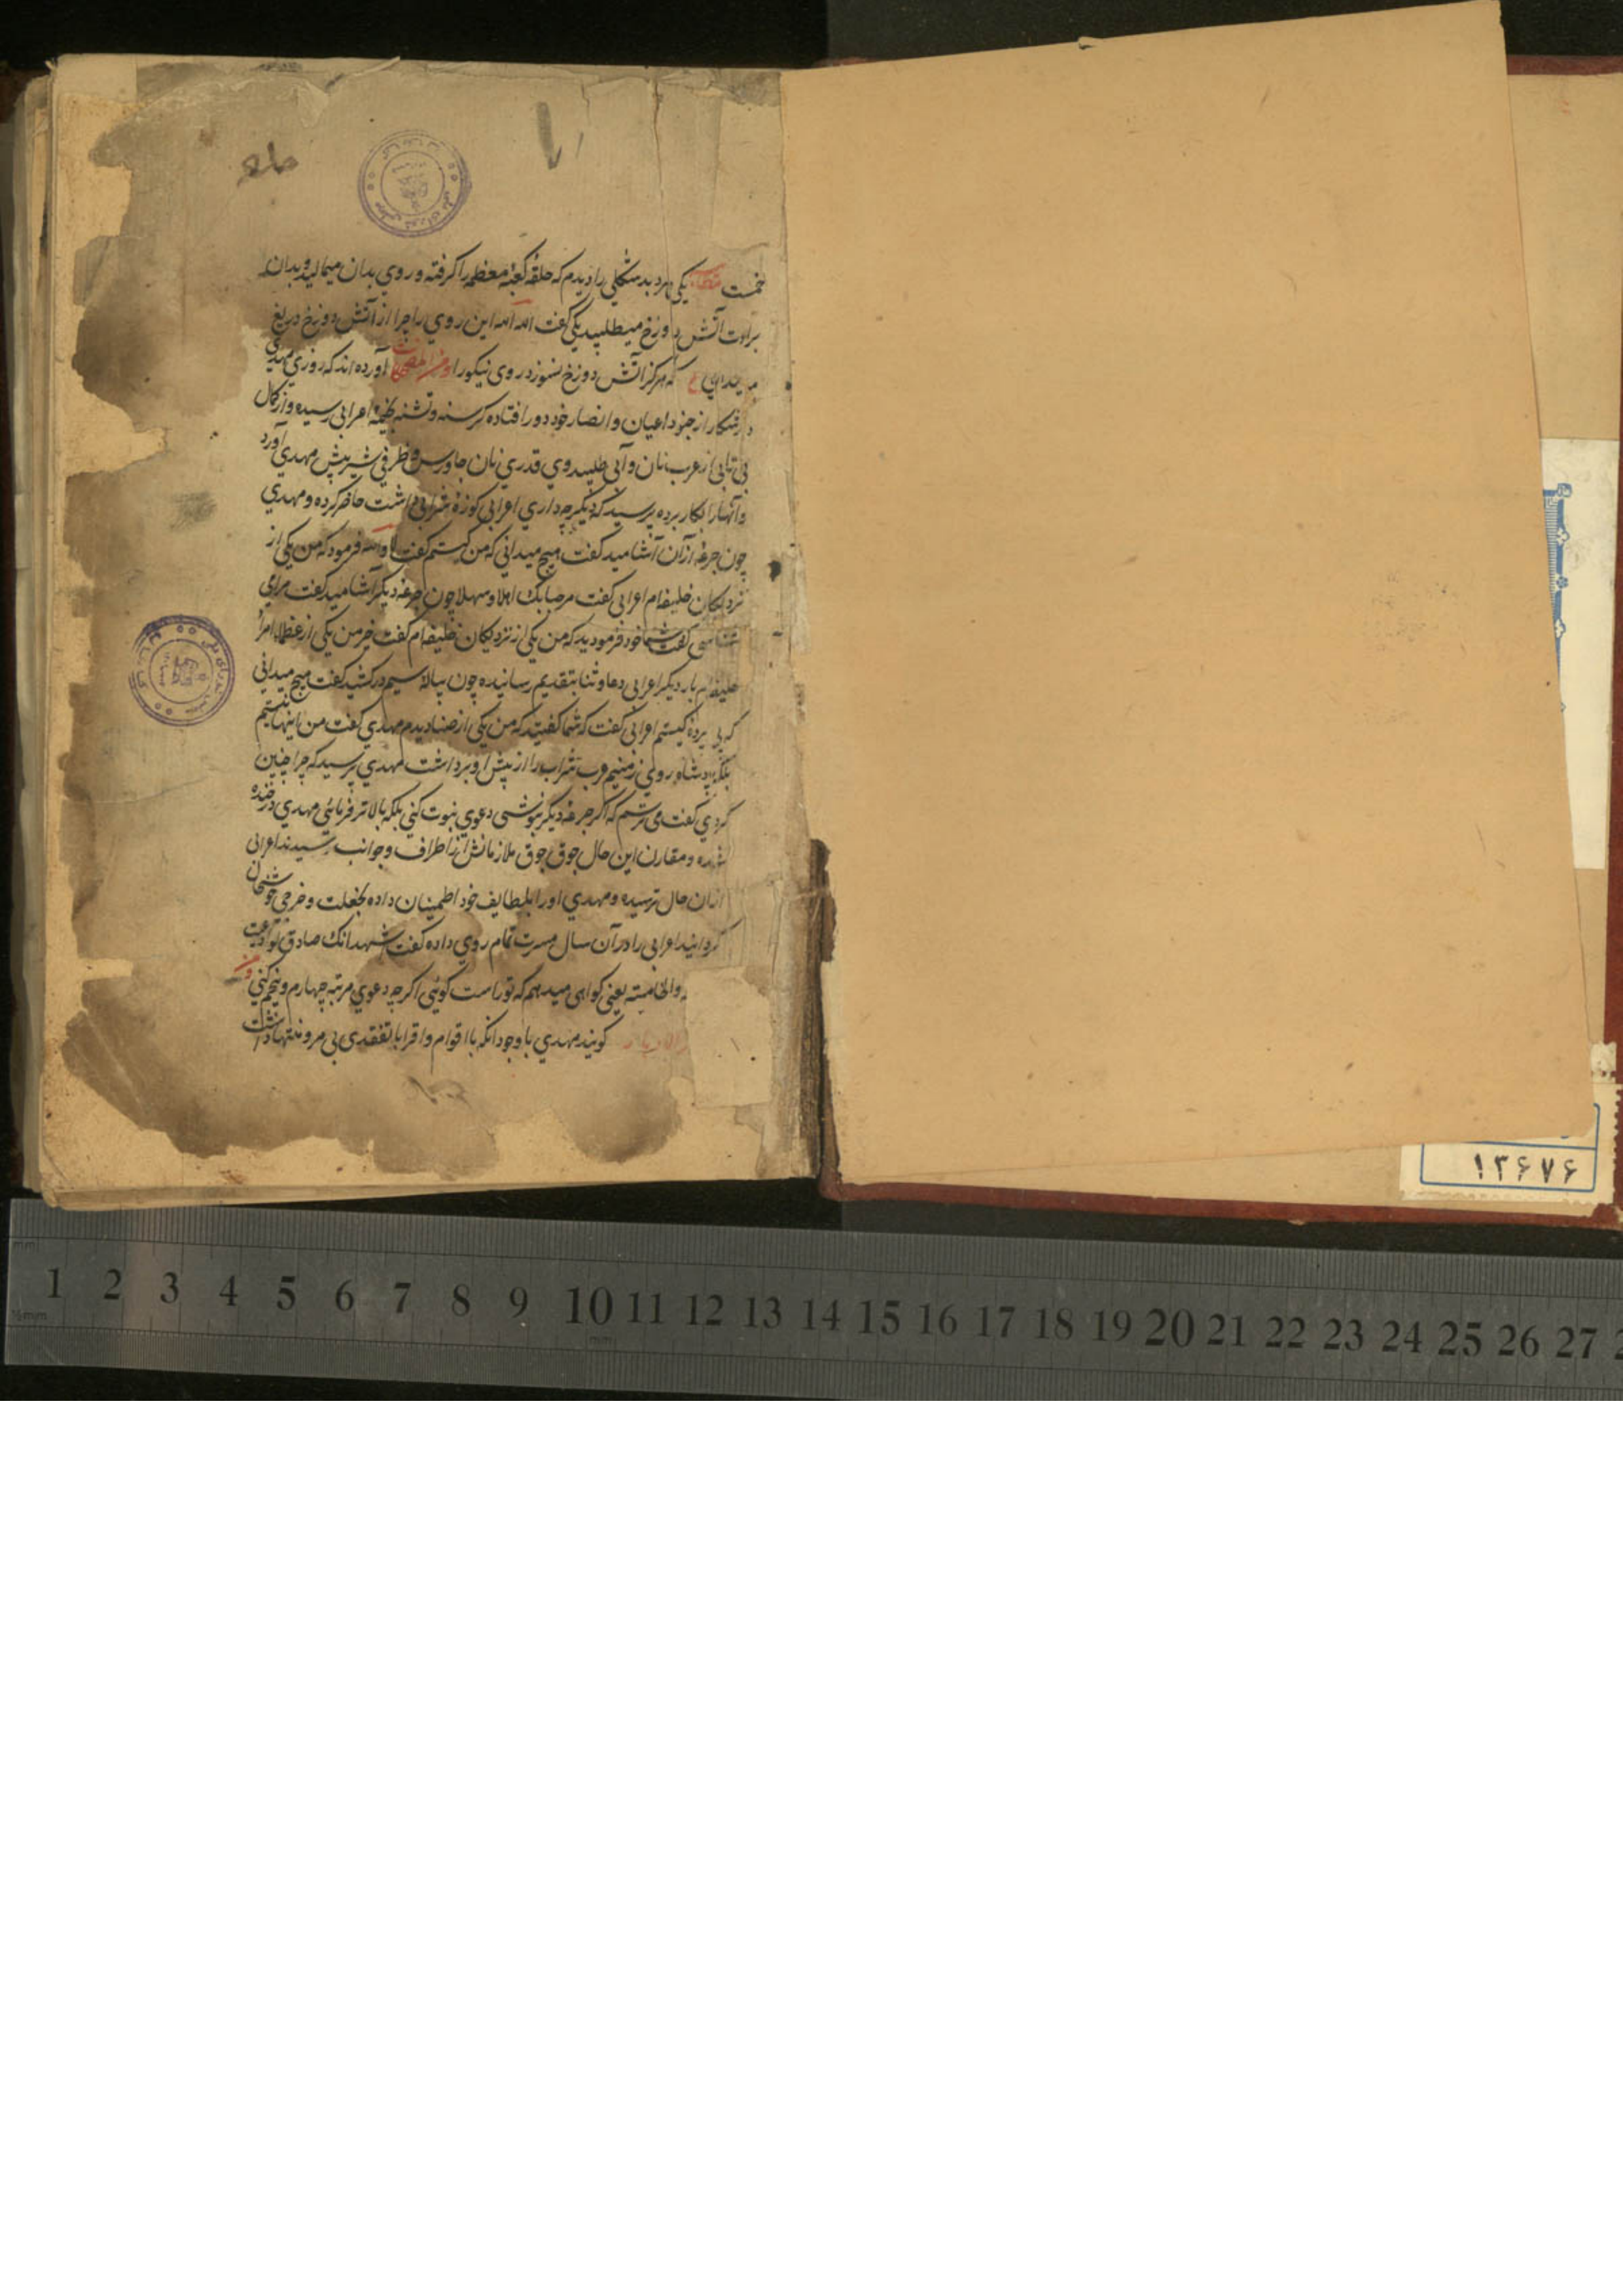 یکی مرد بدشکلی را دیدم که حلقهٔ کعبهٔ معظمه را گرفته و روی بدان میمالید و بدان
براوت آتش دوزخ میطلبید یکی گفت الله الله این روی را چرا از آتش دوزخ دریغ
که هرگز آتش دوزخ نسوزد روی نیکو را و من المضحکات آورده اند که روزی مهدی
در شکار از جنود اعیان و انصار خود دور افتاده گرسنه و تشنه بخیمهٔ اعرابی رسیده و از کمال
بی تابی از عرب نان و آبی طلبید وی قدری نان جاورس و ظرفی شیر پیش مهدی آورد
و آنها را بکار برده پرسید که دیگر چه داری اعرابی کوزهٔ شرابی داشت حاضر کرده و مهدی
چون جرعهٔ ازان آشامید گفت هیچ میدانی که من کیستم گفت لا والله فرمود که من یکی از
نزدیکان خلیفه ام اعرابی گفت مرحبا بک اهلا و سهلا چون جرعهٔ دیگر آشامید گفت مرا می
شناسی گفت شما خود فرمودید که من یکی از نزدیکان خلیفه ام گفت خیر من یکی از عظماء امراء
خلیفه ام بار دیگر اعرابی دعا و ثنا بتقدیم رسانیده چون پیالهٔ سیم درکشید گفت هیچ میدانی
که کیستم اعرابی گفت که شما گفتید که من یکی از صنادیدم مهدی گفت من اینها نیستم
بلکه پادشاه روی زمینم عرب شراب را از پیش او برداشت مهدی پرسید که چرا چنین
کردی گفت می ترسم که اگر جرعهٔ دیگر بنوشی دعوی نبوت کنی بلکه بالاتر فرمائی مهدی در خنده
شده و مقارن این حال جوق جوق ملازمانش از اطراف و جوانب رسیدند اعرابی
ازان حال ترسیده و مهدی او را بلطایف خود اطمینان داده بخلعت و خرجی خوشحال
گردانید اعرابی را در آن سال مسرت تمام روی داده گفت اشهد انک صادق لو ادعیت
والخامسة یعنی گواهی میدهم که تو راست گوئی اگرچه دعوی مرتبه چهارم و پنجم کنی و من
گویند مهدی با وجود آنکه با اقوام و اقربا تفقدی بی مر و منتها داشت
۱۳۶۷۶
1 2 3 4 5 6 7 8 9 10 11 12 13 14 15 16 17 18 19 20 21 22 23 24 25 26 27